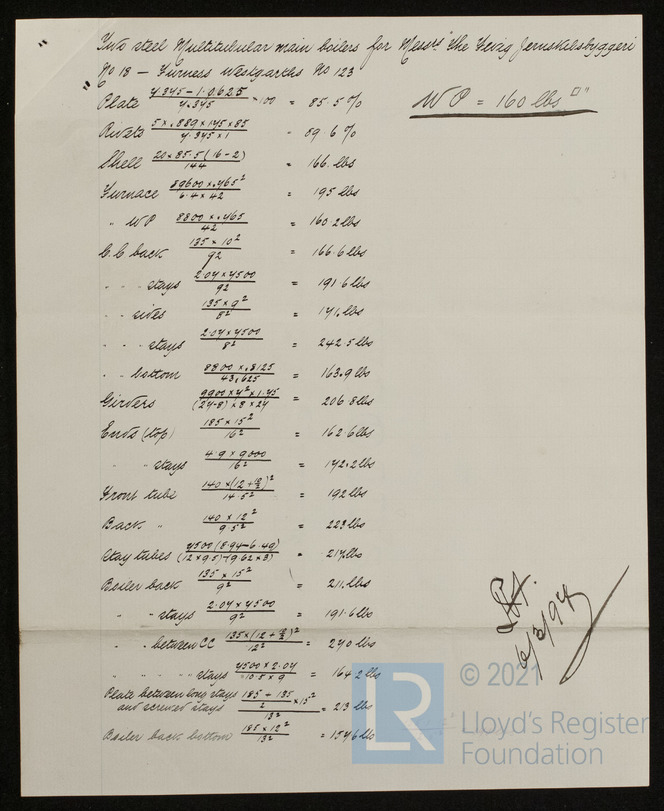 Two steel Multitubular main boilers for Messrs The Jernskibsbyggeri
No 18 — Furness Westgarths No 123
WP = 160 lbs □"
Plate (7.345 − 1.0625)/7.345 × 100 = 85.5 %
Rivets (5 × .889 × 175 × 85)/(7.345 × 1) = 89.6 %
Shell (20 × 85.5 (16 − 2))/144 = 166. lbs
Furnace (89600 × .465²)/(6.4 × 42) = 195 lbs
" WP (8800 × .465)/42 = 160.2 lbs
C.C back (135 × 10²)/92 = 166.6 lbs
" " stays (2.04 × 4500)/92 = 191.6 lbs
" " sides (135 × 9²)/8² = 171. lbs
" " stays (2.04 × 4500)/8² = 242.5 lbs
" " bottom (8800 × .8125)/43.625 = 163.9 lbs
Girders (9900 × 7² × 1.45)/((24-8) × 8 × 24) = 206.8 lbs
Ends (top) (185 × 15²)/16² = 162.6 lbs
" " stays (4.9 × 9000)/16² = 172.2 lbs
Front tube 140 × (12 + )²/14.5² = 192 lbs
Back " (140 × 12²)/9.5² = 223 lbs
Stay tubes (7500 (8.94 − 6.49))/((12 × 9.5) − (9.62 × 3)) = 217 lbs
Boiler back (135 × 15²)/9² = 211. lbs
" " stays (2.04 × 4500)/9² = 191.6 lbs
" " between CC 135 × (12 + )²/12² = 240 lbs
" " " " stays (4500 × 2.04)/(10.5 × 9) = 164.2 lbs
Plate between long stays (185 + 135)/2 × 15²
and screwed stays /13² = 213 lbs
Boiler back bottom (185 × 12²)/13² = 157.6 lbs
6/3/97
© 2021
LR
Lloyd's Register
Foundation